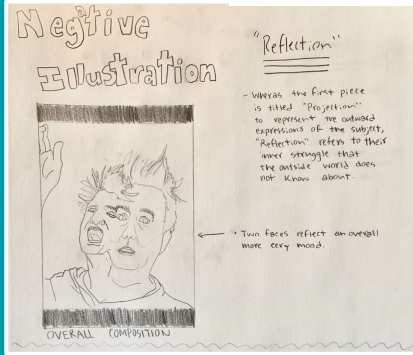 Negitive
Illustration
"Reflection"
- Wheras the first piece
is titled "Projection"
to represent the outward
expressions of the subject,
"Reflection" refers to their
inner struggle that
the outside world does
not know about.
• Two faces reflect an overall
more eery mood.
OVERALL COMPOSITION